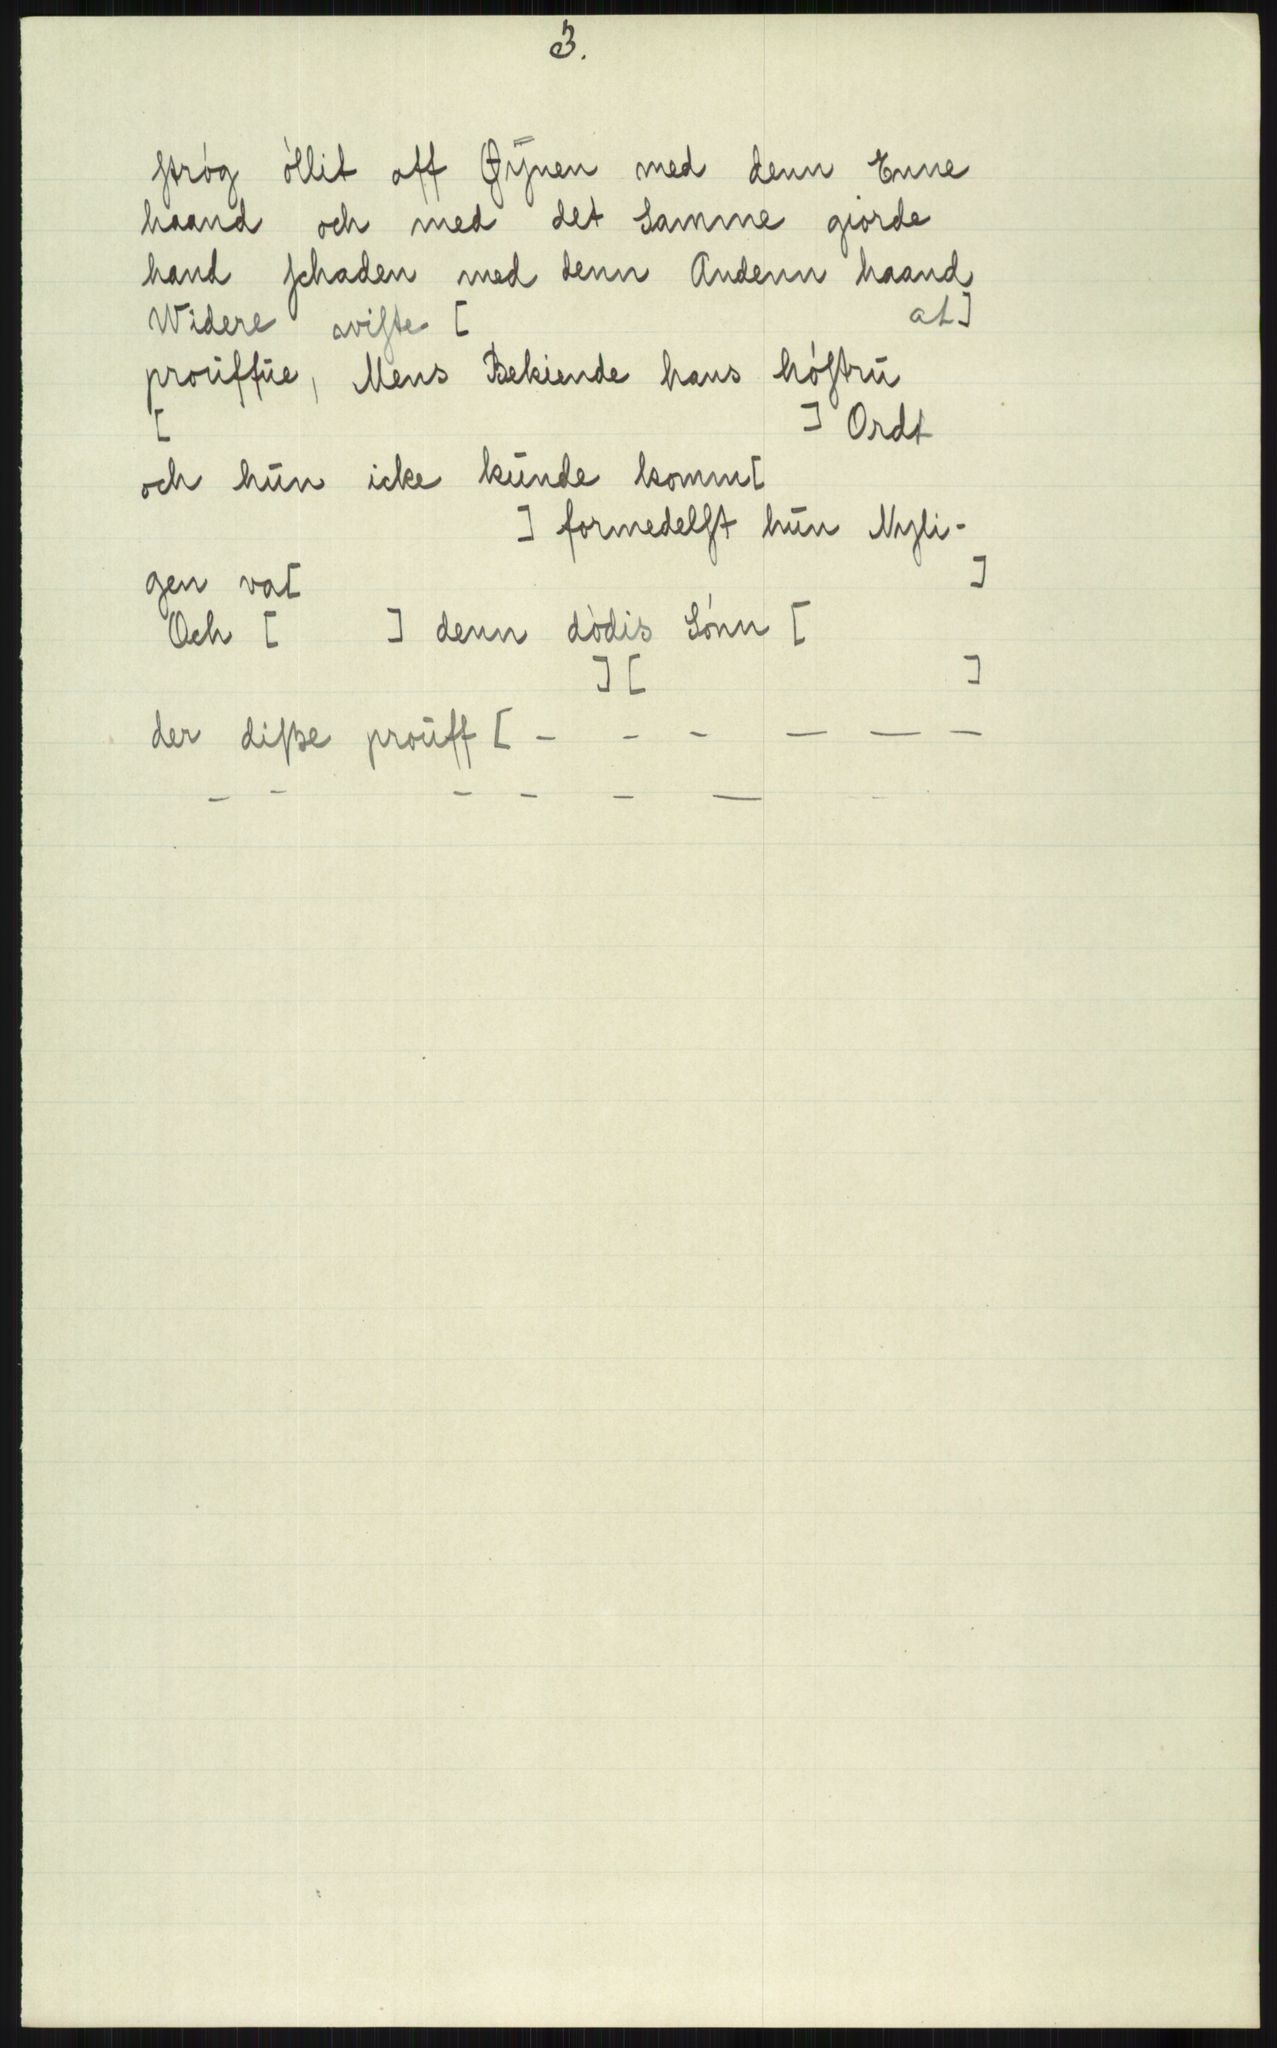 3.
strög öllit aff Øÿnen med denn Enne
haand och med det Samme giorde
hand schaden med denn Andenn haand
Widere aviste [ at]
proüffüe, Mens Bekiende hans höstrü
[ ] Ordt
och hün icke künde komm[
] formedelst hün Nyli-
gen va[ ]
Och [ ] denn dödis Sönn [
] [ ]
der disse proüff [ - - - — — —
- - - - - —